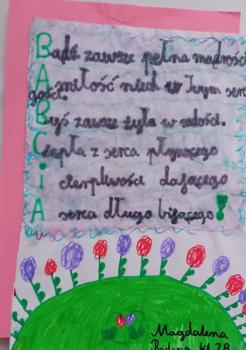 Bądź zawsze pełna mądrości
A miłość niech w Twym serc
gości.
Byś zawsze żyła w radości.
Ciepła z serca płynącego
I cierpliwości dającego
A serca długo bijącego!
Magdalena
kl 2B